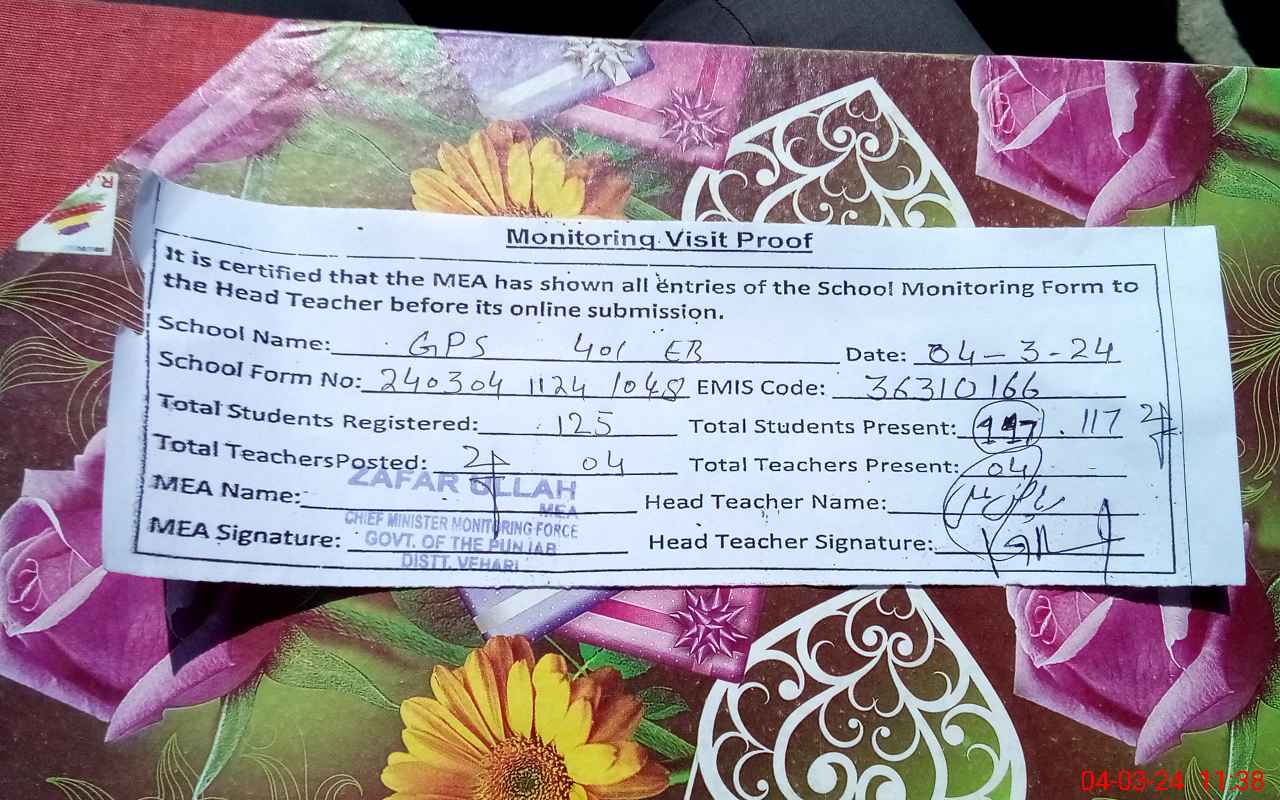 Monitoring Visit Proof
It is certified that the MEA has shown all entries of the School Monitoring Form to
the Head Teacher before its online submission.
School Name: GPS 401 EB Date: 04-3-24
School Form No: 240304 1124 1048 EMIS Code: 36310166
Total Students Registered: 125 Total Students Present: 117 117
Total TeachersPosted: 04 Total Teachers Present: 04
MEA Name: Head Teacher Name:
ZAFAR ULLAH
MEA
CHIEF MINISTER MONITORING FORCE
MEA Signature: Head Teacher Signature:
GOVT. OF THE PUNJAB
DISTT. VEHARI
04-03-24 11:38